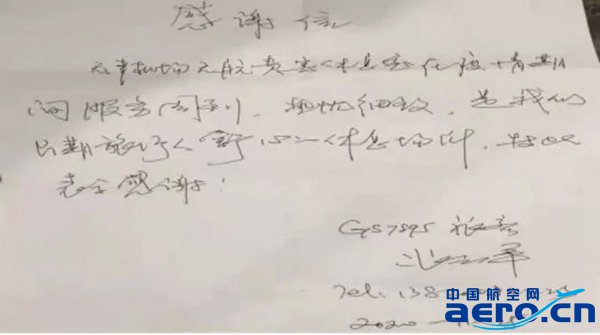 感谢信
天津机场天航贵宾休息室在疫情期
间服务周到，细致，是我们
长期旅行人舒心休息场所，特此
表示感谢！
GS7895 旅客
Tel: 138
2020
中国航空网
aero.cn